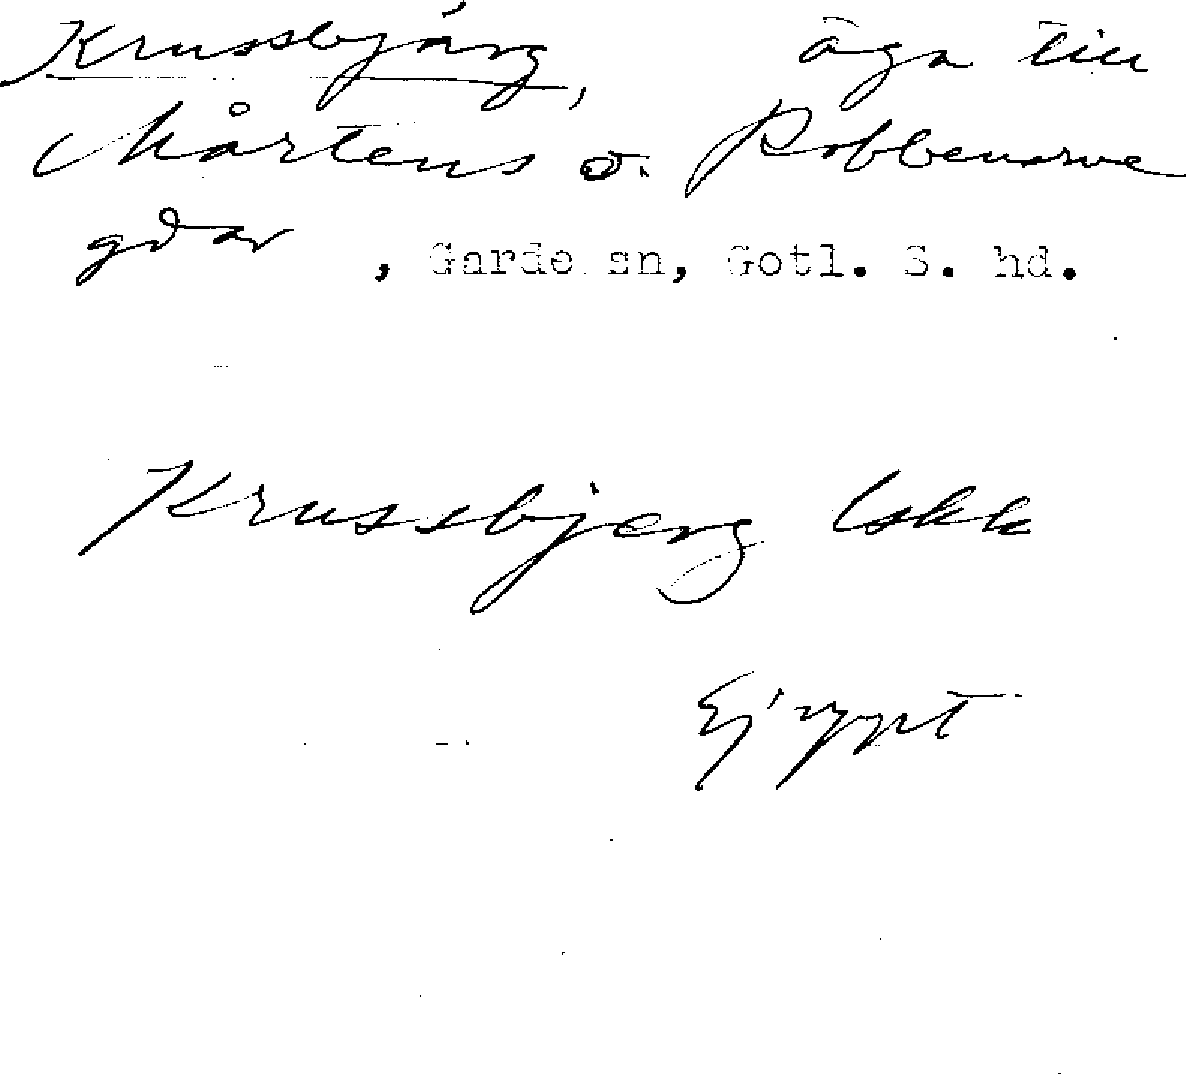 Krussbjärg, äga till
Mårtens o. Robbenarve
gdar, Garde sn, Gotl. S. hd.
Krussbjerg Iskk
Ej uppt